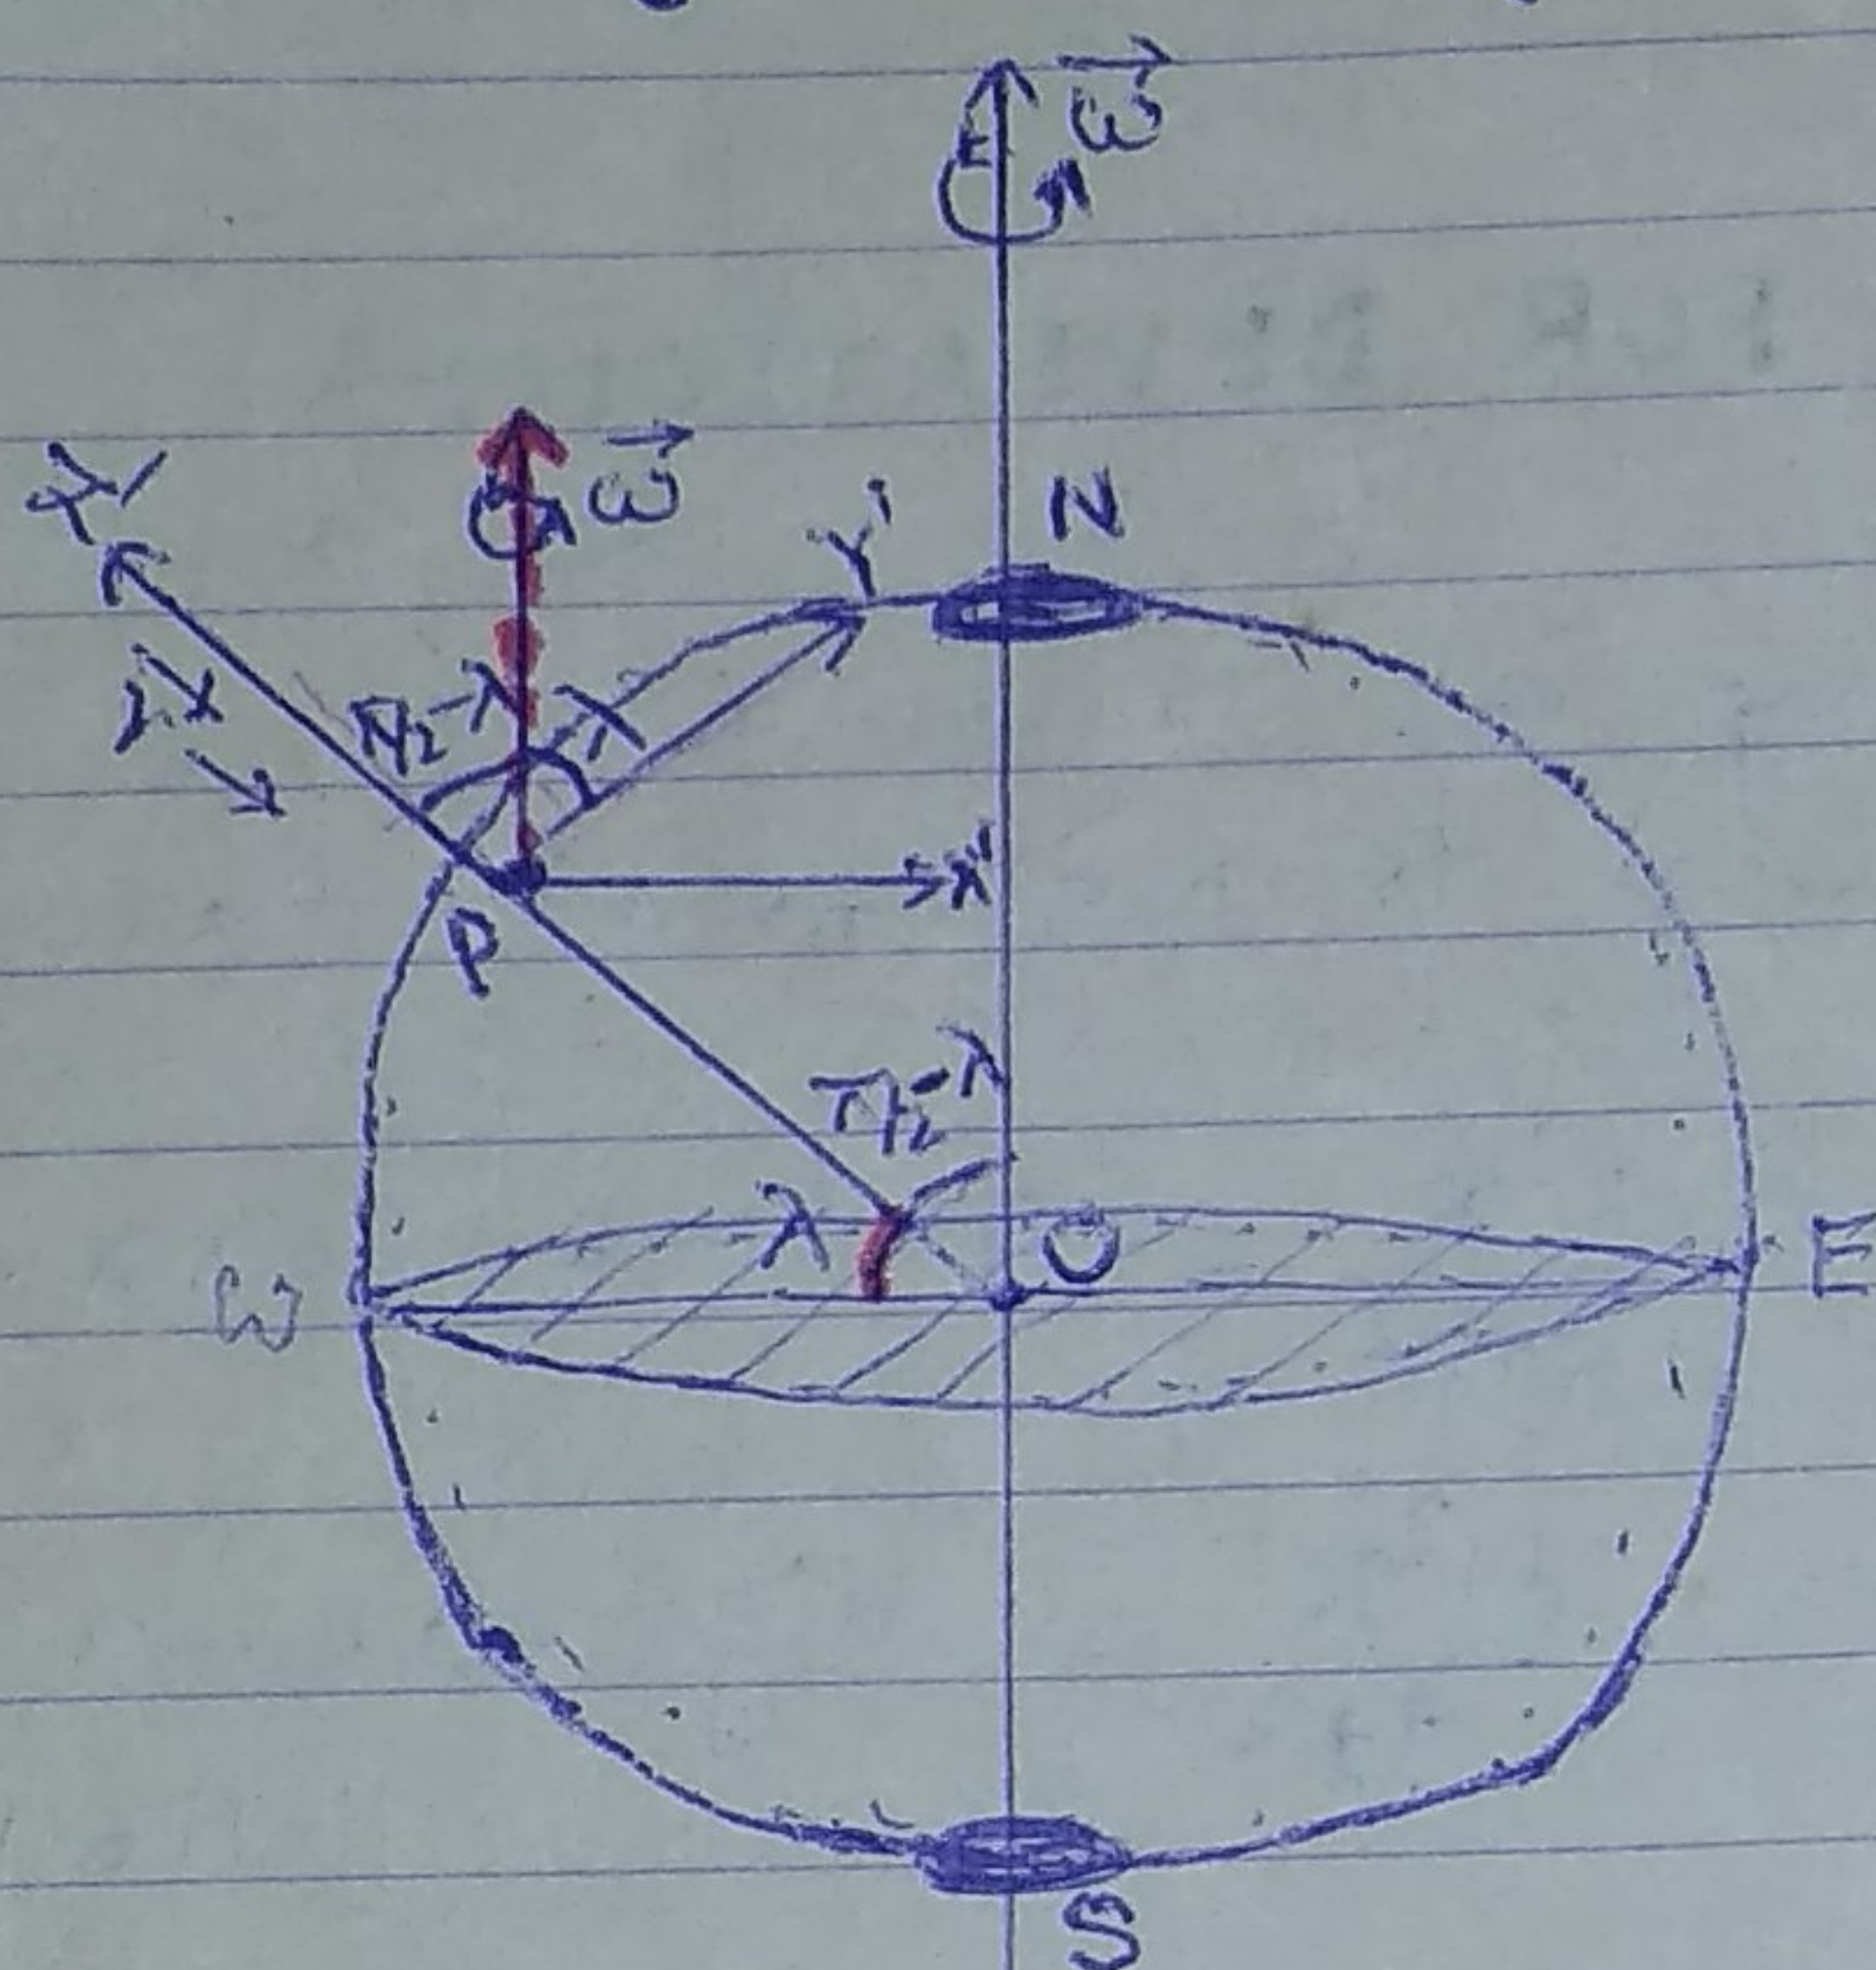 ω⃗
N
ω⃗
Y'
Z'
π/2-λ λ
X'
P
π/2-λ
λ
O
W
E
S